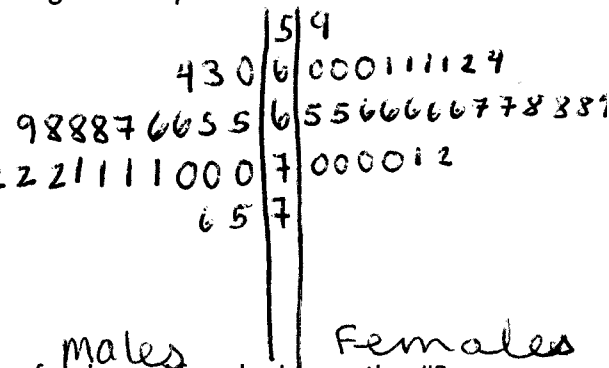 5 9
4 3 0 6 0 0 0 1 1 1 1 2 4
9 8 8 8 7 6 6 5 5 6 5 5 6 6 6 6 6 7 7 8 8 8 9
2 2 2 1 1 1 1 0 0 0 7 0 0 0 0 1 2
6 5 7
Males Females